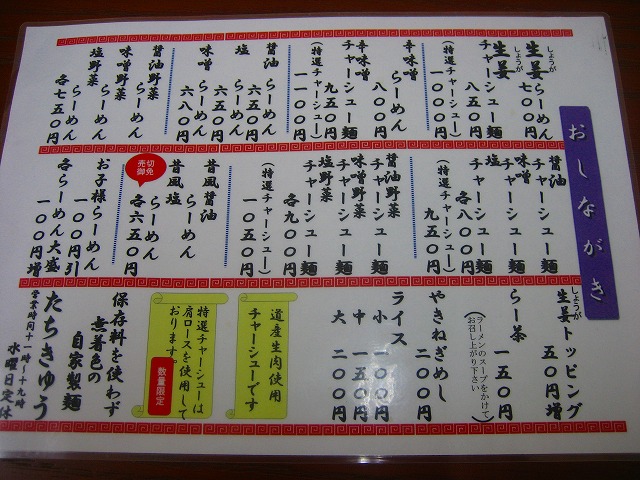 おしながき
生姜らーめん
しょうが
七〇〇円
生姜チャーシュー麺
しょうが
八五〇円
(特選チャーシュー)
一〇〇〇円
辛味噌らーめん
八〇〇円
辛味噌チャーシュー麺
(特選チャーシュー)
一一〇〇円
醤油らーめん
六五〇円
塩らーめん
六五〇円
味噌らーめん
六八〇円
醤油野菜らーめん
味噌野菜らーめん
塩野菜らーめん
各七五〇円
醤油チャーシュー麺
味噌チャーシュー麺
塩チャーシュー麺
各八〇〇円
(特選チャーシュー)
九五〇円
醤油野菜チャーシュー麺
味噌野菜チャーシュー麺
塩野菜チャーシュー麺
各九〇〇円
(特選チャーシュー)
一〇五〇円
昔風醤油らーめん
昔風塩らーめん
各六五〇円
売切御免
お子様らーめん
一〇〇円引
各らーめん大盛
一〇〇円増
生姜トッピング
しょうが
五〇円増
らー茶
一五〇円
(ラーメンのスープをかけて
お召し上がり下さい)
やきねぎめし
二〇〇円
ライス
小 一〇〇円
中 一五〇円
大 二〇〇円
道産生肉使用
チャーシューです
特選チャーシューは
肩ロースを使用して
おります。
数量限定
保存料を使わず
無着色の
自家製麺
たちきゅう
営業時間十一時〜十九時
水曜日定休